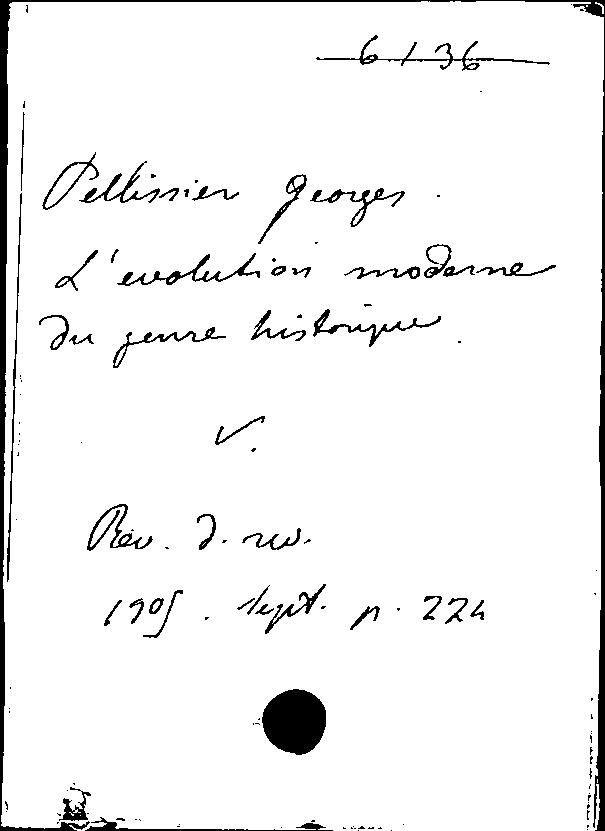 6136
Pellissier Georges.
L'evolution moderne
du genre historique.
V.
Rev. d. rev.
1905. sept. p. 224